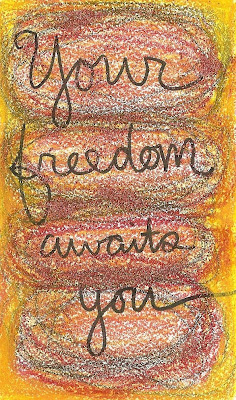 Your
freedom
awaits
you